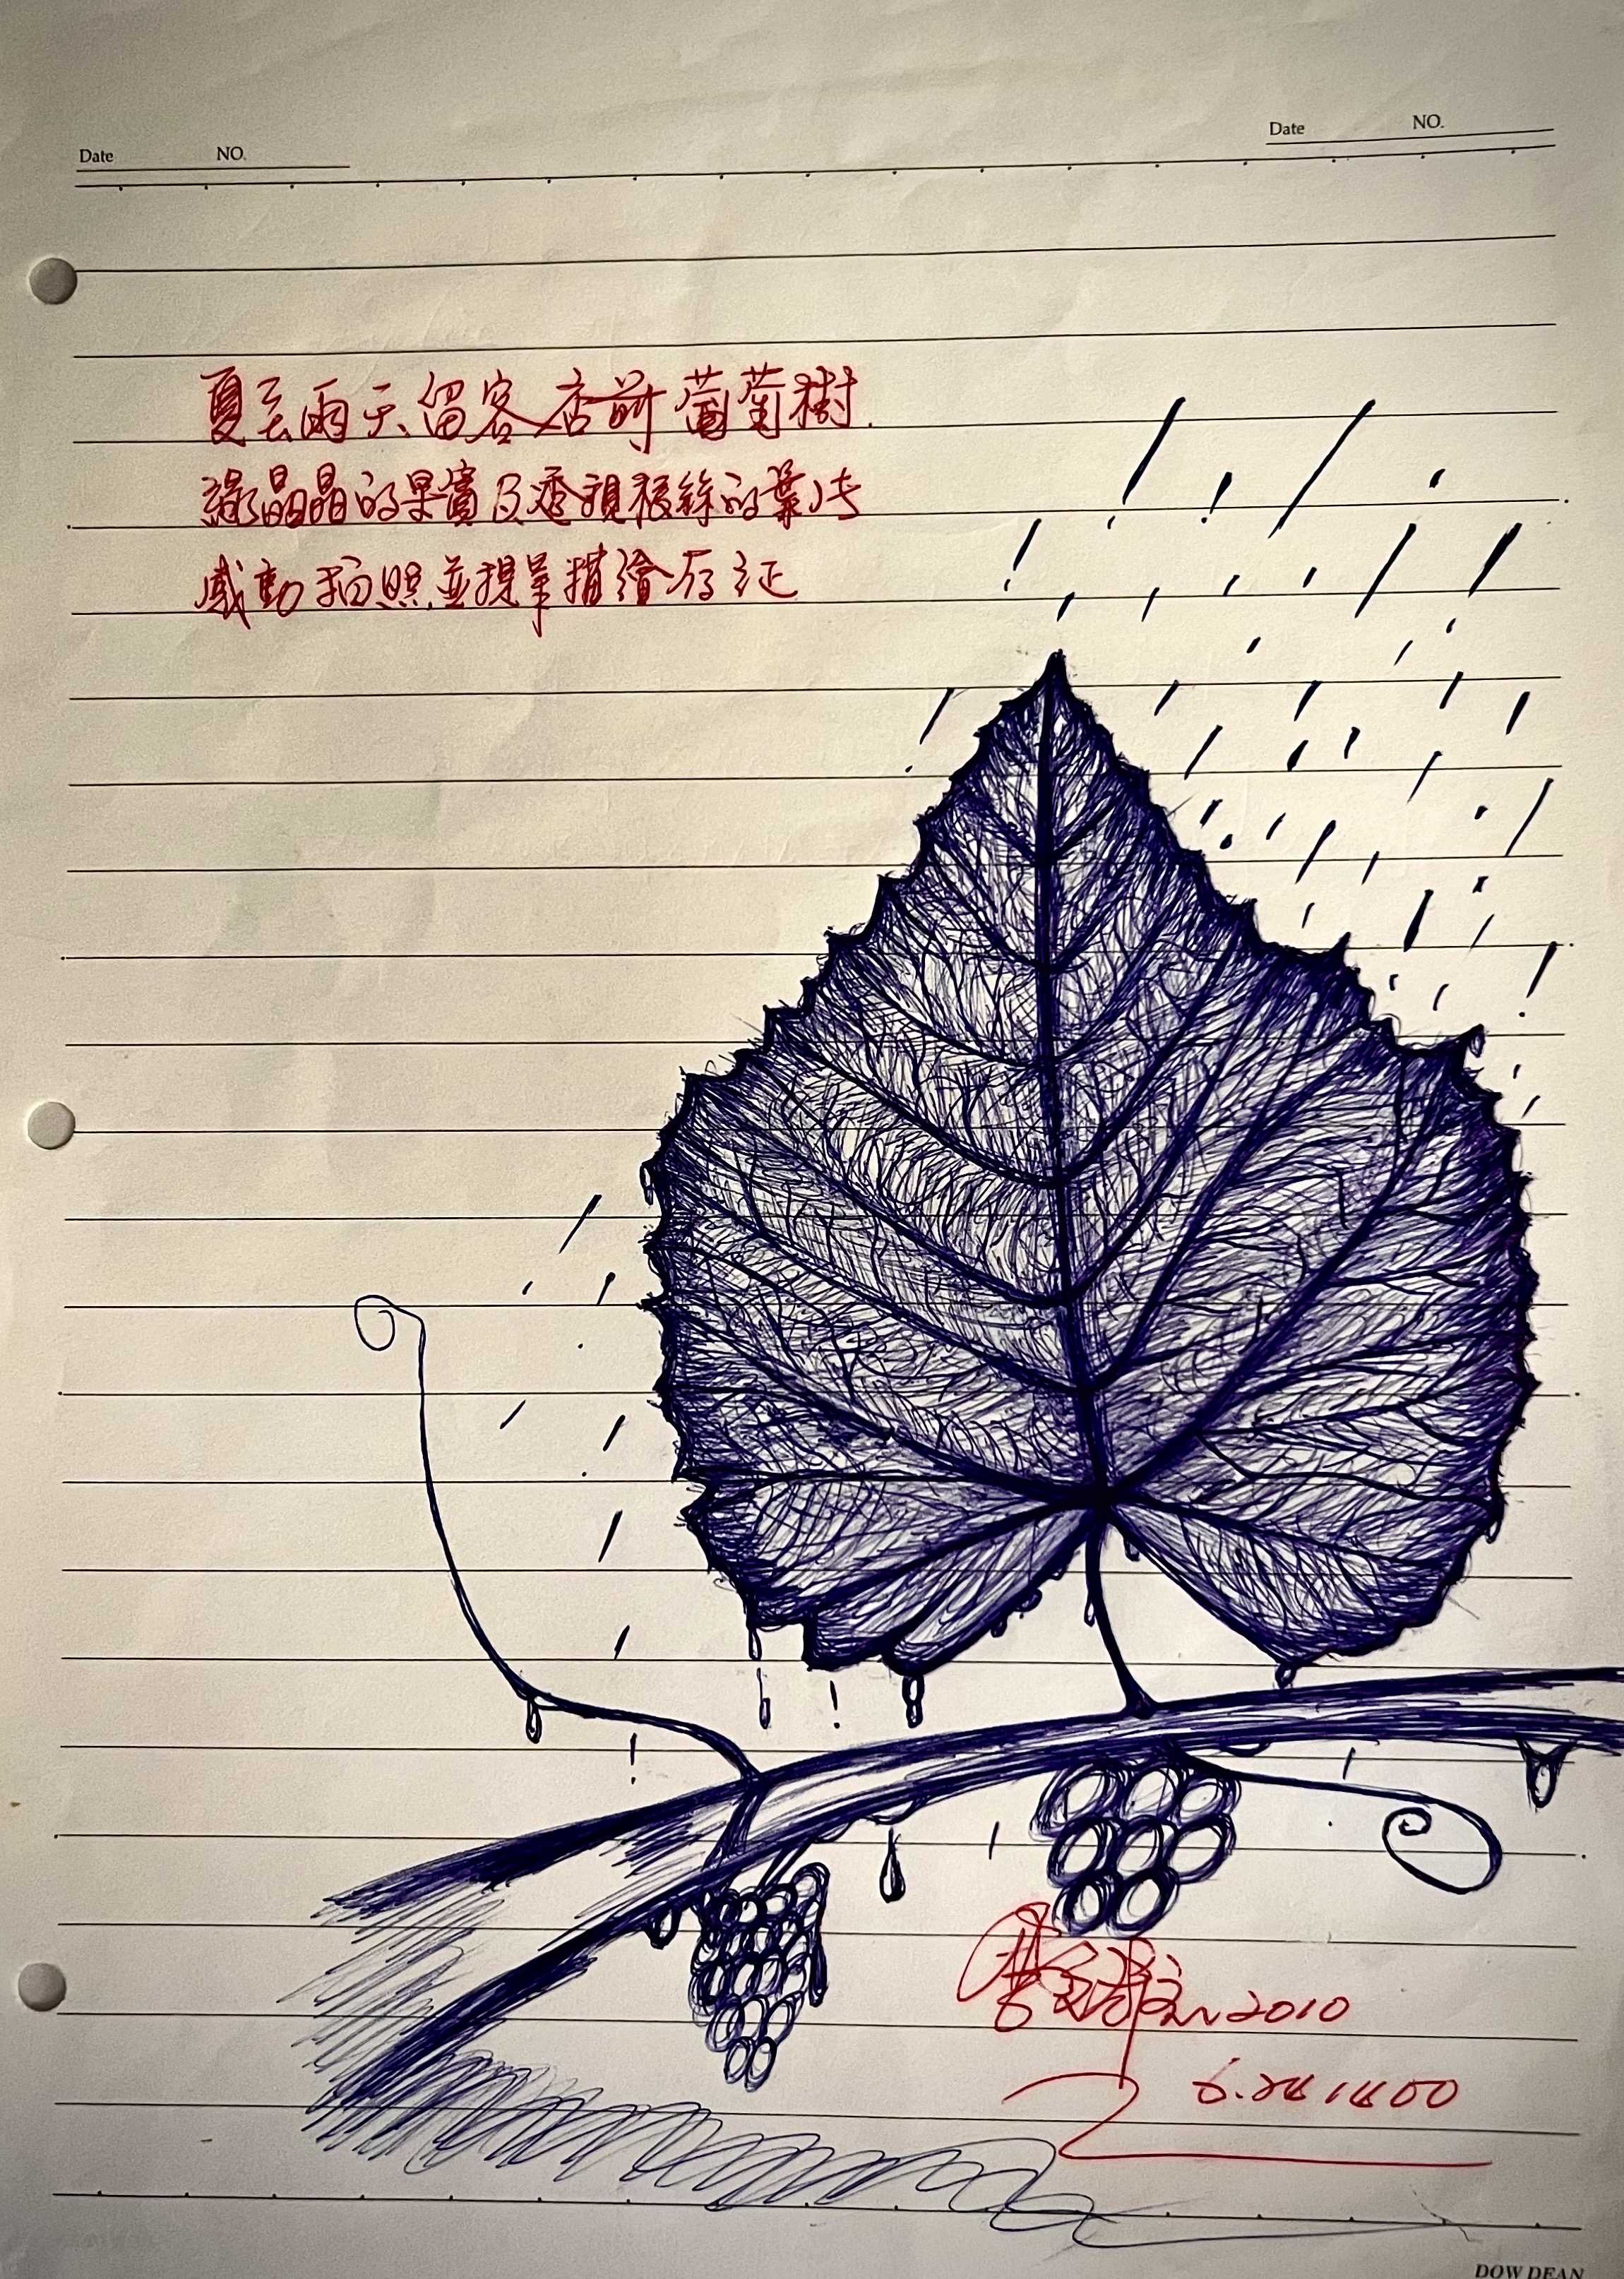 Date NO.
Date NO.
夏至雨天留客店前葡萄樹.
綠晶晶的果實及透視根絲的葉片
感動拍照並提筆描繪存证
2010
DOW DEAN